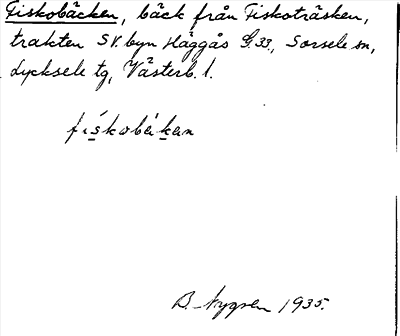 Fiskobäcken, bäck från Fiskoträsken,
trakten SV. byn Häggås G.33, Sorsele sn,
Lycksele tg, Västerb. l.
fiskobäken
B. Nygren 1935.